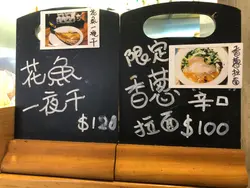 花魚一夜干
花魚
一夜干
$120
香蔥拉面
限定
香蔥
辛口
拉面 $100